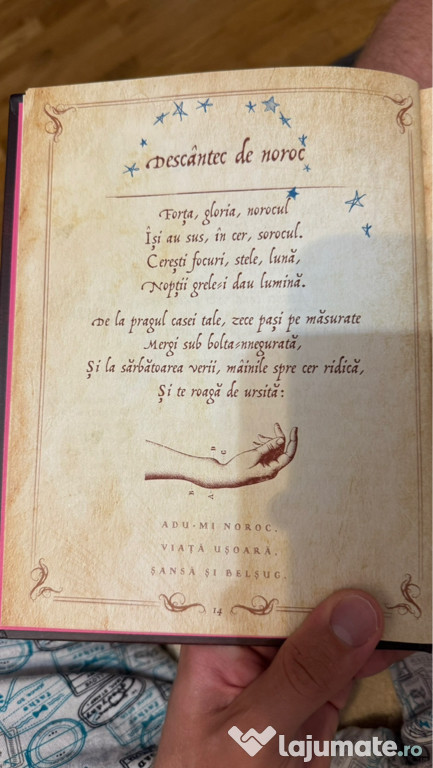 Descântec de noroc
Forța, gloria, norocul
Își au sus, în cer, sorocul.
Cerești focuri, stele, lună,
Nopții grele-i dau lumină.
De la pragul casei tale, zece pași pe măsurate
Mergi sub bolta-nnegurată,
Și la sărbătoarea verii, mâinile spre cer ridică,
Și te roagă de ursită:
B
C
D
A
ADU-MI NOROC,
VIAȚĂ UȘOARĂ,
ȘANSĂ ȘI BELȘUG.
14
lajumate.ro